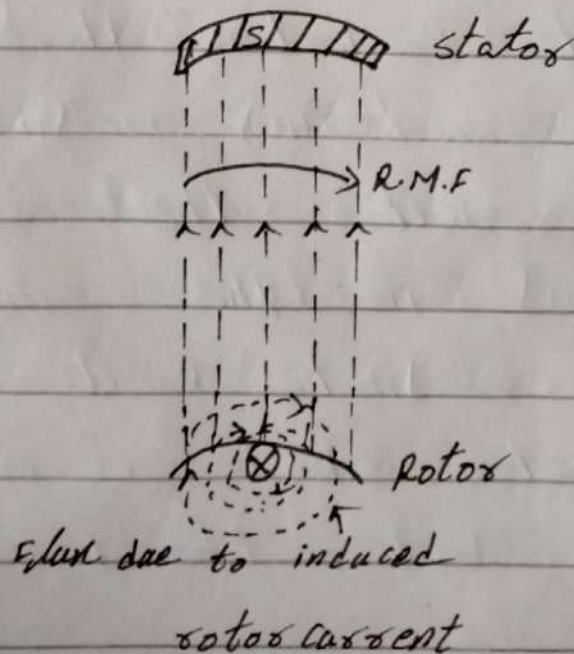 S
stator
R.M.F
Rotor
Flux due to induced
rotor current